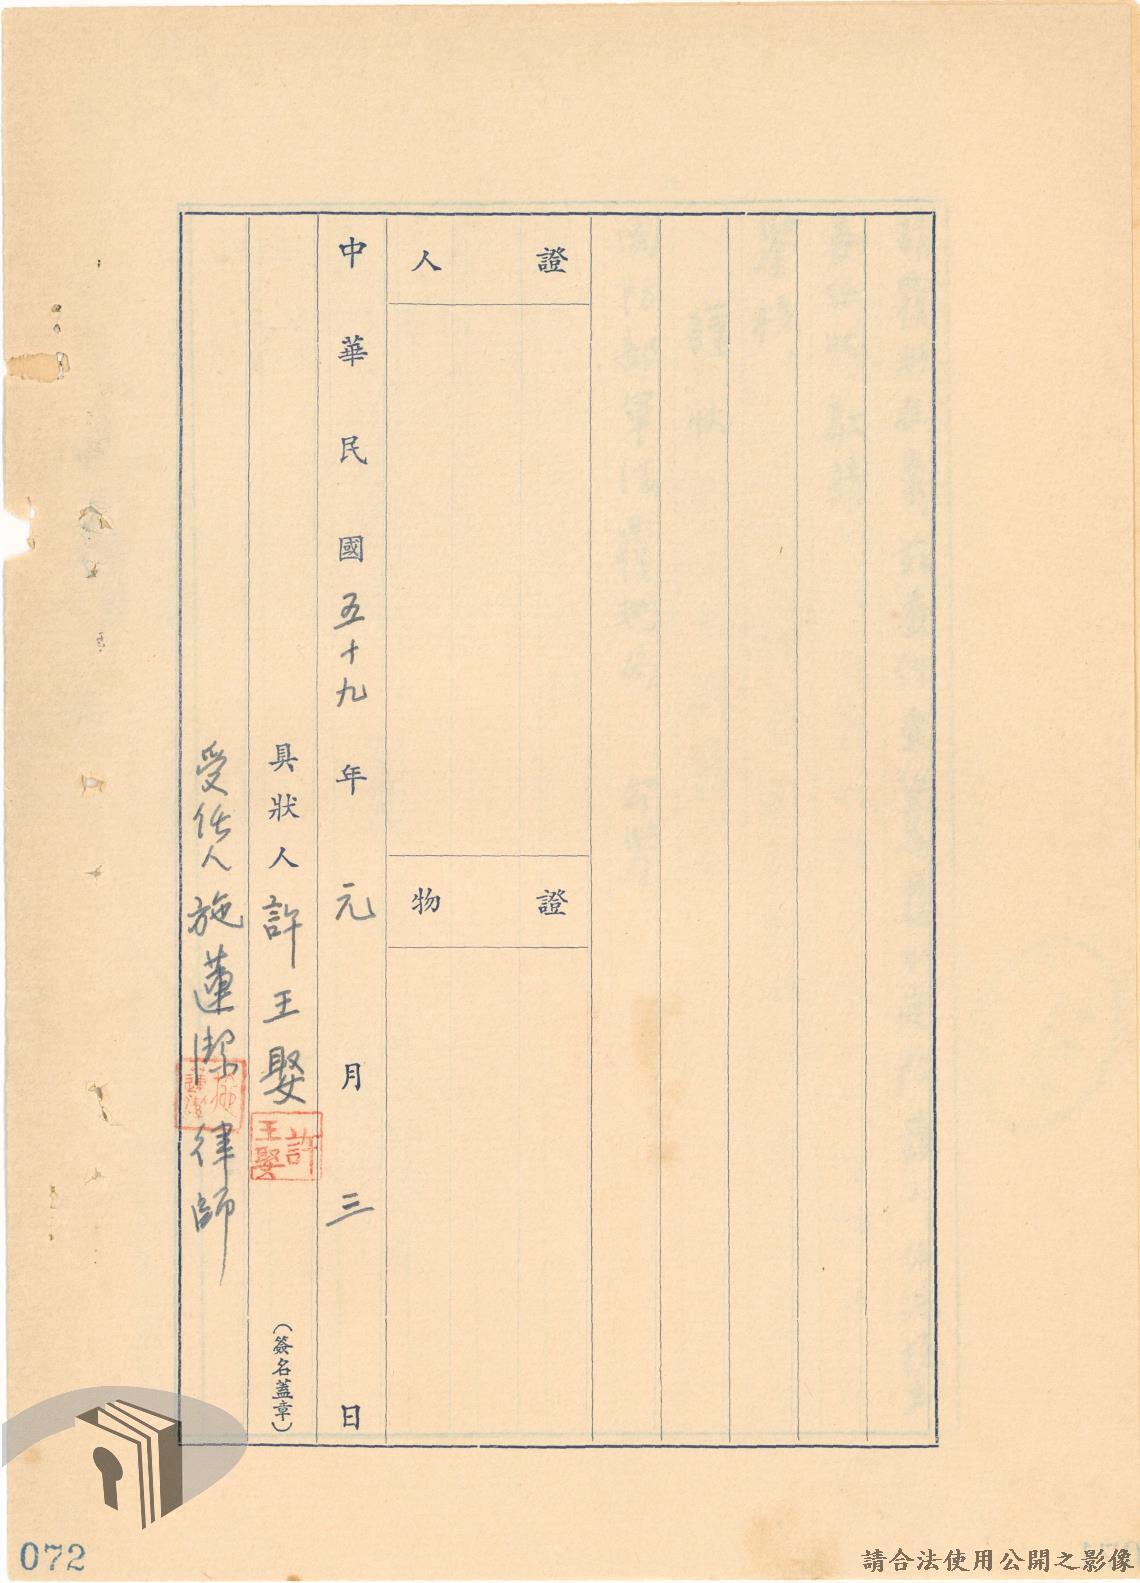 證人
證物
中華民國五十九年元月三日
具狀人許王娶
許王娶
(簽名蓋章)
受任人施蓮潔律師
072
請合法使用公開之影像